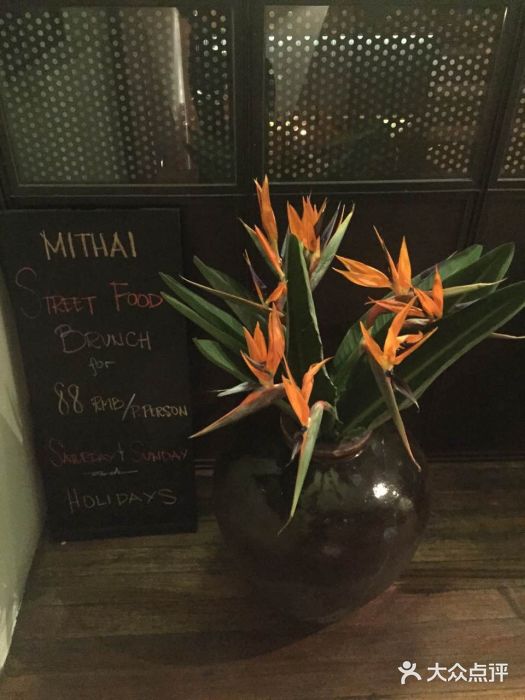 MITHAI
STREET FOOD
BRUNCH
for
88 RMB/PERSON
SATURDAY + SUNDAY
and
HOLIDAYS
大众点评